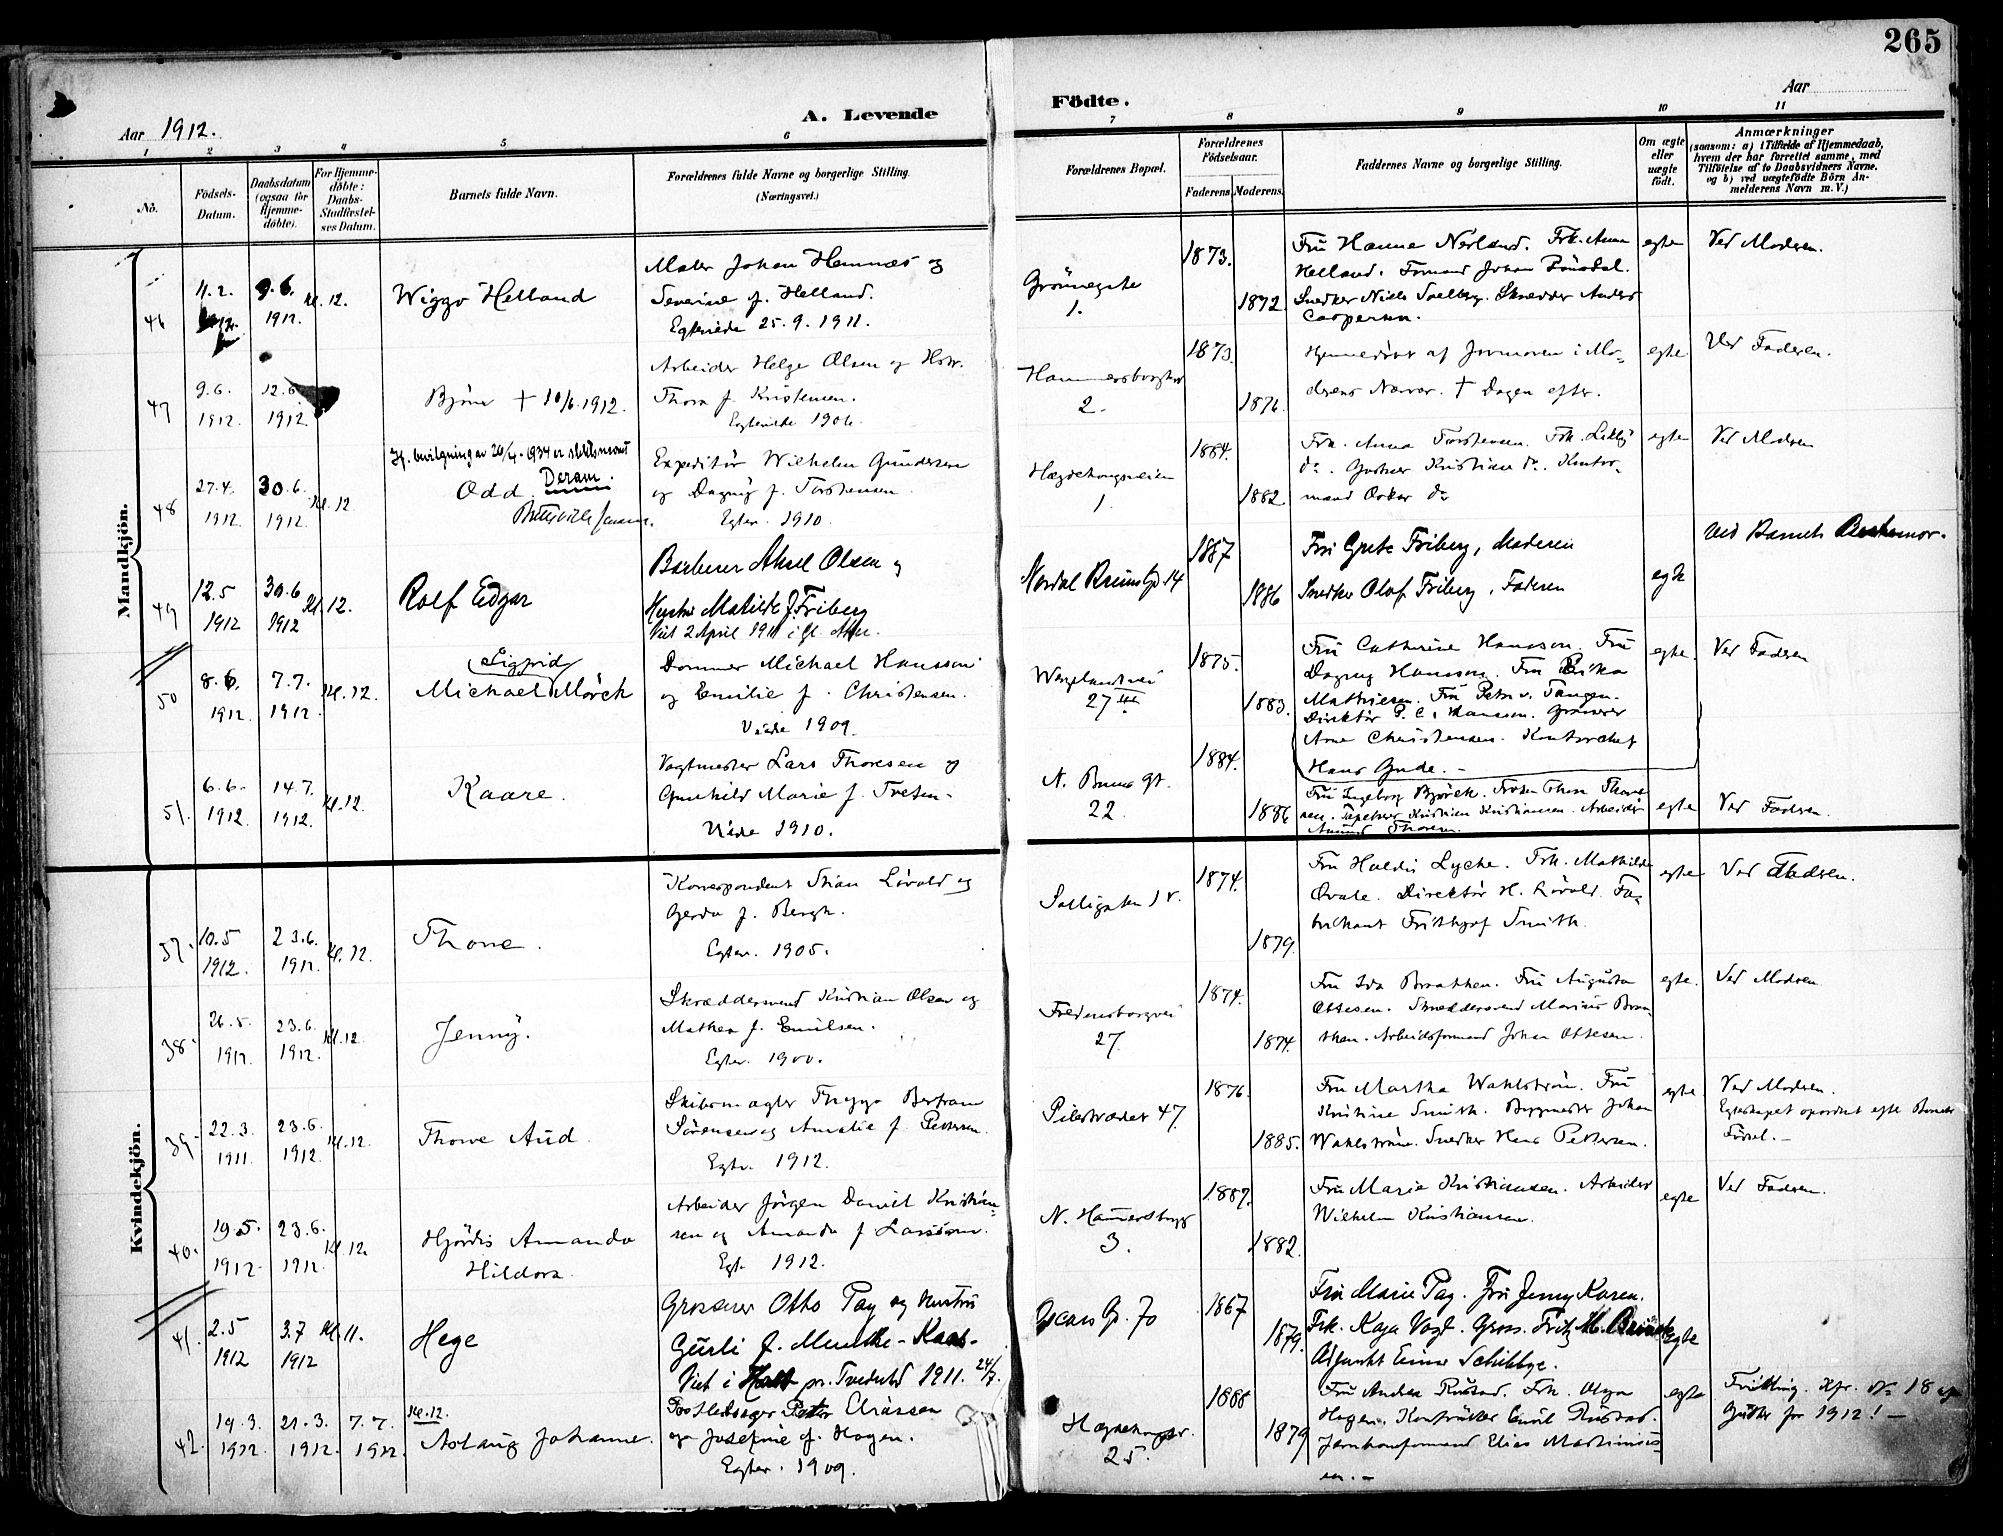 265
Aar 1912.
A. Levende
Födte.
Aar
1 2 3 4 5 6 7 8 9 10 11
No.
Födsels-
Datum.
Daabsdatum
(ogsaa for
Hjemme-
döbte).
For Hjemme-
döbte:
Daabs-
Stadfæstel-
ses Datum.
Barnets fulde Navn.
Forældrenes fulde Navne og borgerlige Stilling.
(Næringsvei.)
Forældrenes Bopæl.
Forældrenes
Födselsaar.
Faderens. Moderens.
Faddernes Navne og borgerlige Stilling.
Om ægte
eller
uægte
födt.
Anmærkninger
(saasom: a) i Tilfælde af Hjemmedaab,
hvem der har forrettet samme, med
Tilföielse af to Daabsvidners Navne,
og b) ved uægtefödte Börn An-
melderens Navn m. V.)
Mandkjön.
46
11.2.
9.6.
1912.
Kl. 12.
Wiggo Helland
Maler Johan Hemnæs og
Severine f. Helland.
Egteviede 25.9.1911.
Grönnegate
1.
1873.
1872
Fru Hanne Nerland. Frk. Anna
Helland. Formand Johan
Snedker Niels Solberg. Skrædder Anders
Caspersen.
egte
Ved Modren.
47
9.6.
1912
12.6
1912
Björn † 10/6.1912.
Arbeider Helge Olsen og Hstr.
Thora f. Kristensen.
Egteviede 1906.
Hammersborgtor
2.
1873.
1876.
Hjemmedöbt af Jormoren i Mo-
derens Nærvær. † Dagen efter.
egte
Ved Faderen.
48
27.4.
1912
30.6.
1912.
Kl. 12
If. bevilgning av 20/4-1934 er slektsnavnet
Deram.
Odd.
Expeditör Wilhelm Gundersen
og Dagny f. Torstensen.
Egtev. 1910.
Hægdehougsveien
1.
1884.
1882.
Frk. Anna Torstensen. Frk.
do. Gartner Kristian do. Kontor-
mand Oskar do
egte
Ved Modren
49
12.5
1912
30.6
1912
Kl. 12.
Rolf Edgar
Barberer Aksel Olsen og
Hustru Matilde f. Friberg
Viet 2 April 1911 i Gl. Aker.
Nordal Bruns Gd. 14
1887
1886
Fru Grete Friberg, Moderen
Snedker Olof Friberg, Faderen
egte
Ved Barnets Bestemor.
50
8.6.
1912
7.7.
1912.
Kl. 12.
Sigfrid
Michael Mörch
Dommer Michael Hansson
og Emilie f. Christensen.
Viede 1909.
Wergelandsvei
27 III
1875.
1883.
Fru Cathrine Hansson. Fru
Dagny Hansson. Fru Rika
Mathiesen. Fru Petra v. Tangen.
Direktör P. C. Hansson. Grosserer
Arne Christensen. Kontorchef
Hans Gude. -
egte.
Ved Faderen
51.
6.6.
1912.
14.7.
1912.
Kl. 12.
Kaare.
Vagtmester Lars Thoresen og
Gunhild Marie f. Tveten.
Viede 1910.
N. Bruns gt.
22.
1884.
1886
Fru Ingeborg Björck.
Tapetserer Kristian Kristiansen. Arbeider
egte
Ved Faderen.
Kvindekjön.
37.
10.5
1912.
23.6.
1912.
Kl. 12.
Thove.
Korrespondent Stian Lövald og
Gerda f. Bergh.
Egtev. 1905.
Solligaten 1 V.
1874.
1879.
Fru Haldis Lyche. Frk. Mathilde
Ovale. Direktör H. Lövald. Fa-
brikant Frithjof Smith.
egte
Ved Faderen.
38.
26.5.
1912.
23.6.
1912.
Kl. 12.
Jenny.
Skræddersvend Kristian Olsen og
Mathea f. Emilsen.
Egtev. 1900.
Fredensborgvei
27.
1874.
1874.
Fru Ida Braathen. Fru Augusta
Ottesen. Skræddersvend Marius Braa-
then. Arbeidsformand Johan Ottesen.
egte.
Ved Modren.
39.
22.3.
1911.
23.6.
1912.
Kl. 12.
Thove Aud.
Skibsmægler Trygge Bertram
Sörensen og Amalie f. Pettersen.
Egtv. 1912.
Pilestrædet 47.
1876.
1885.
Fru Martha Wahlström. Fru
Kristine Smith. Byggmester Johan
Wahlström. Snedker Hans Pettersen.
egte
Ved Modren.
Egteskapet oprettet efter Barnets
Födsel.-
40.
19.5.
1912.
23.6.
1912.
Kl. 12.
Hjördis Amanda
Hildora.
Arbeider Jörgen Daniel Kristian-
sen og Amanda f. Larsson.
Egt. 1912.
N. Hammersborggt
3.
1887.
1882.
Fru Marie Kristiansen. Arbeider
Wilhelm Kristiansen.
egte
Ved Faderen.
41.
2.5
1912
3.7
1912
Kl. 11.
Hege
Grosserer Otto Pay og Hustru
Gurli f. Munthe-Kaas-
Viet i Holt pr. Tvedestd 1911. 24/7.
Oscars Gd. 70
1867
1879.
Fru Marie Pay. Fru Jenny Karen.
Frk. Kaja Vogt. Gross. Fritz M.
Adjunkt Einar Schibbye.
egte
42.
19.3.
1912.
21.3.
1912.
7.7.
1912
Kl. 12.
Aslaug Johanne.
Postledsager Peter Eliassen
og Josefine f. Hagen.
Egtev. 1909.
Hægdehougsv.
25.
1888
1879
Fru Andrea Rustad. Frk. Olga
Hagen. Kontrollör Emil Rustad.
Jernbaneformand Elias Martinius-
en.-
egte
18
for 1912! -